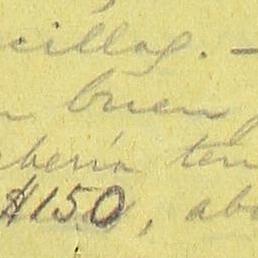 cillas. —
n buen
beria ten
$150, abo